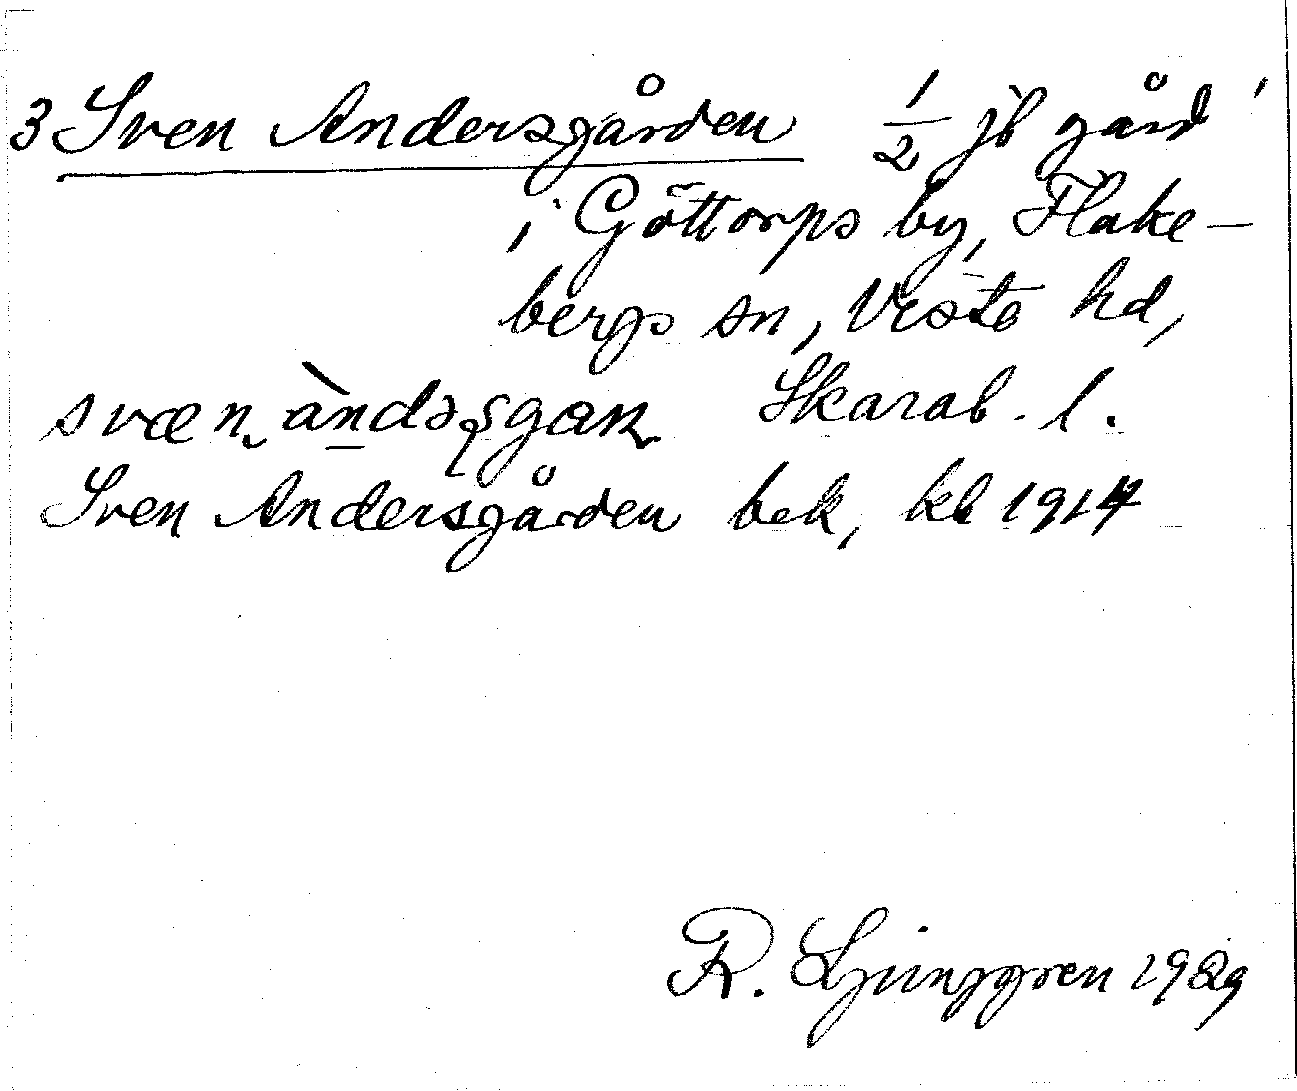 3 Sven Andersgården 1/2 jb gård
i Göttorps by, Flake-
bergs sn, Viste hd,
Skarab. l.
svæn àndəʂgan
Sven Andersgården bek, kb 1914
R. Ljunggren 1929